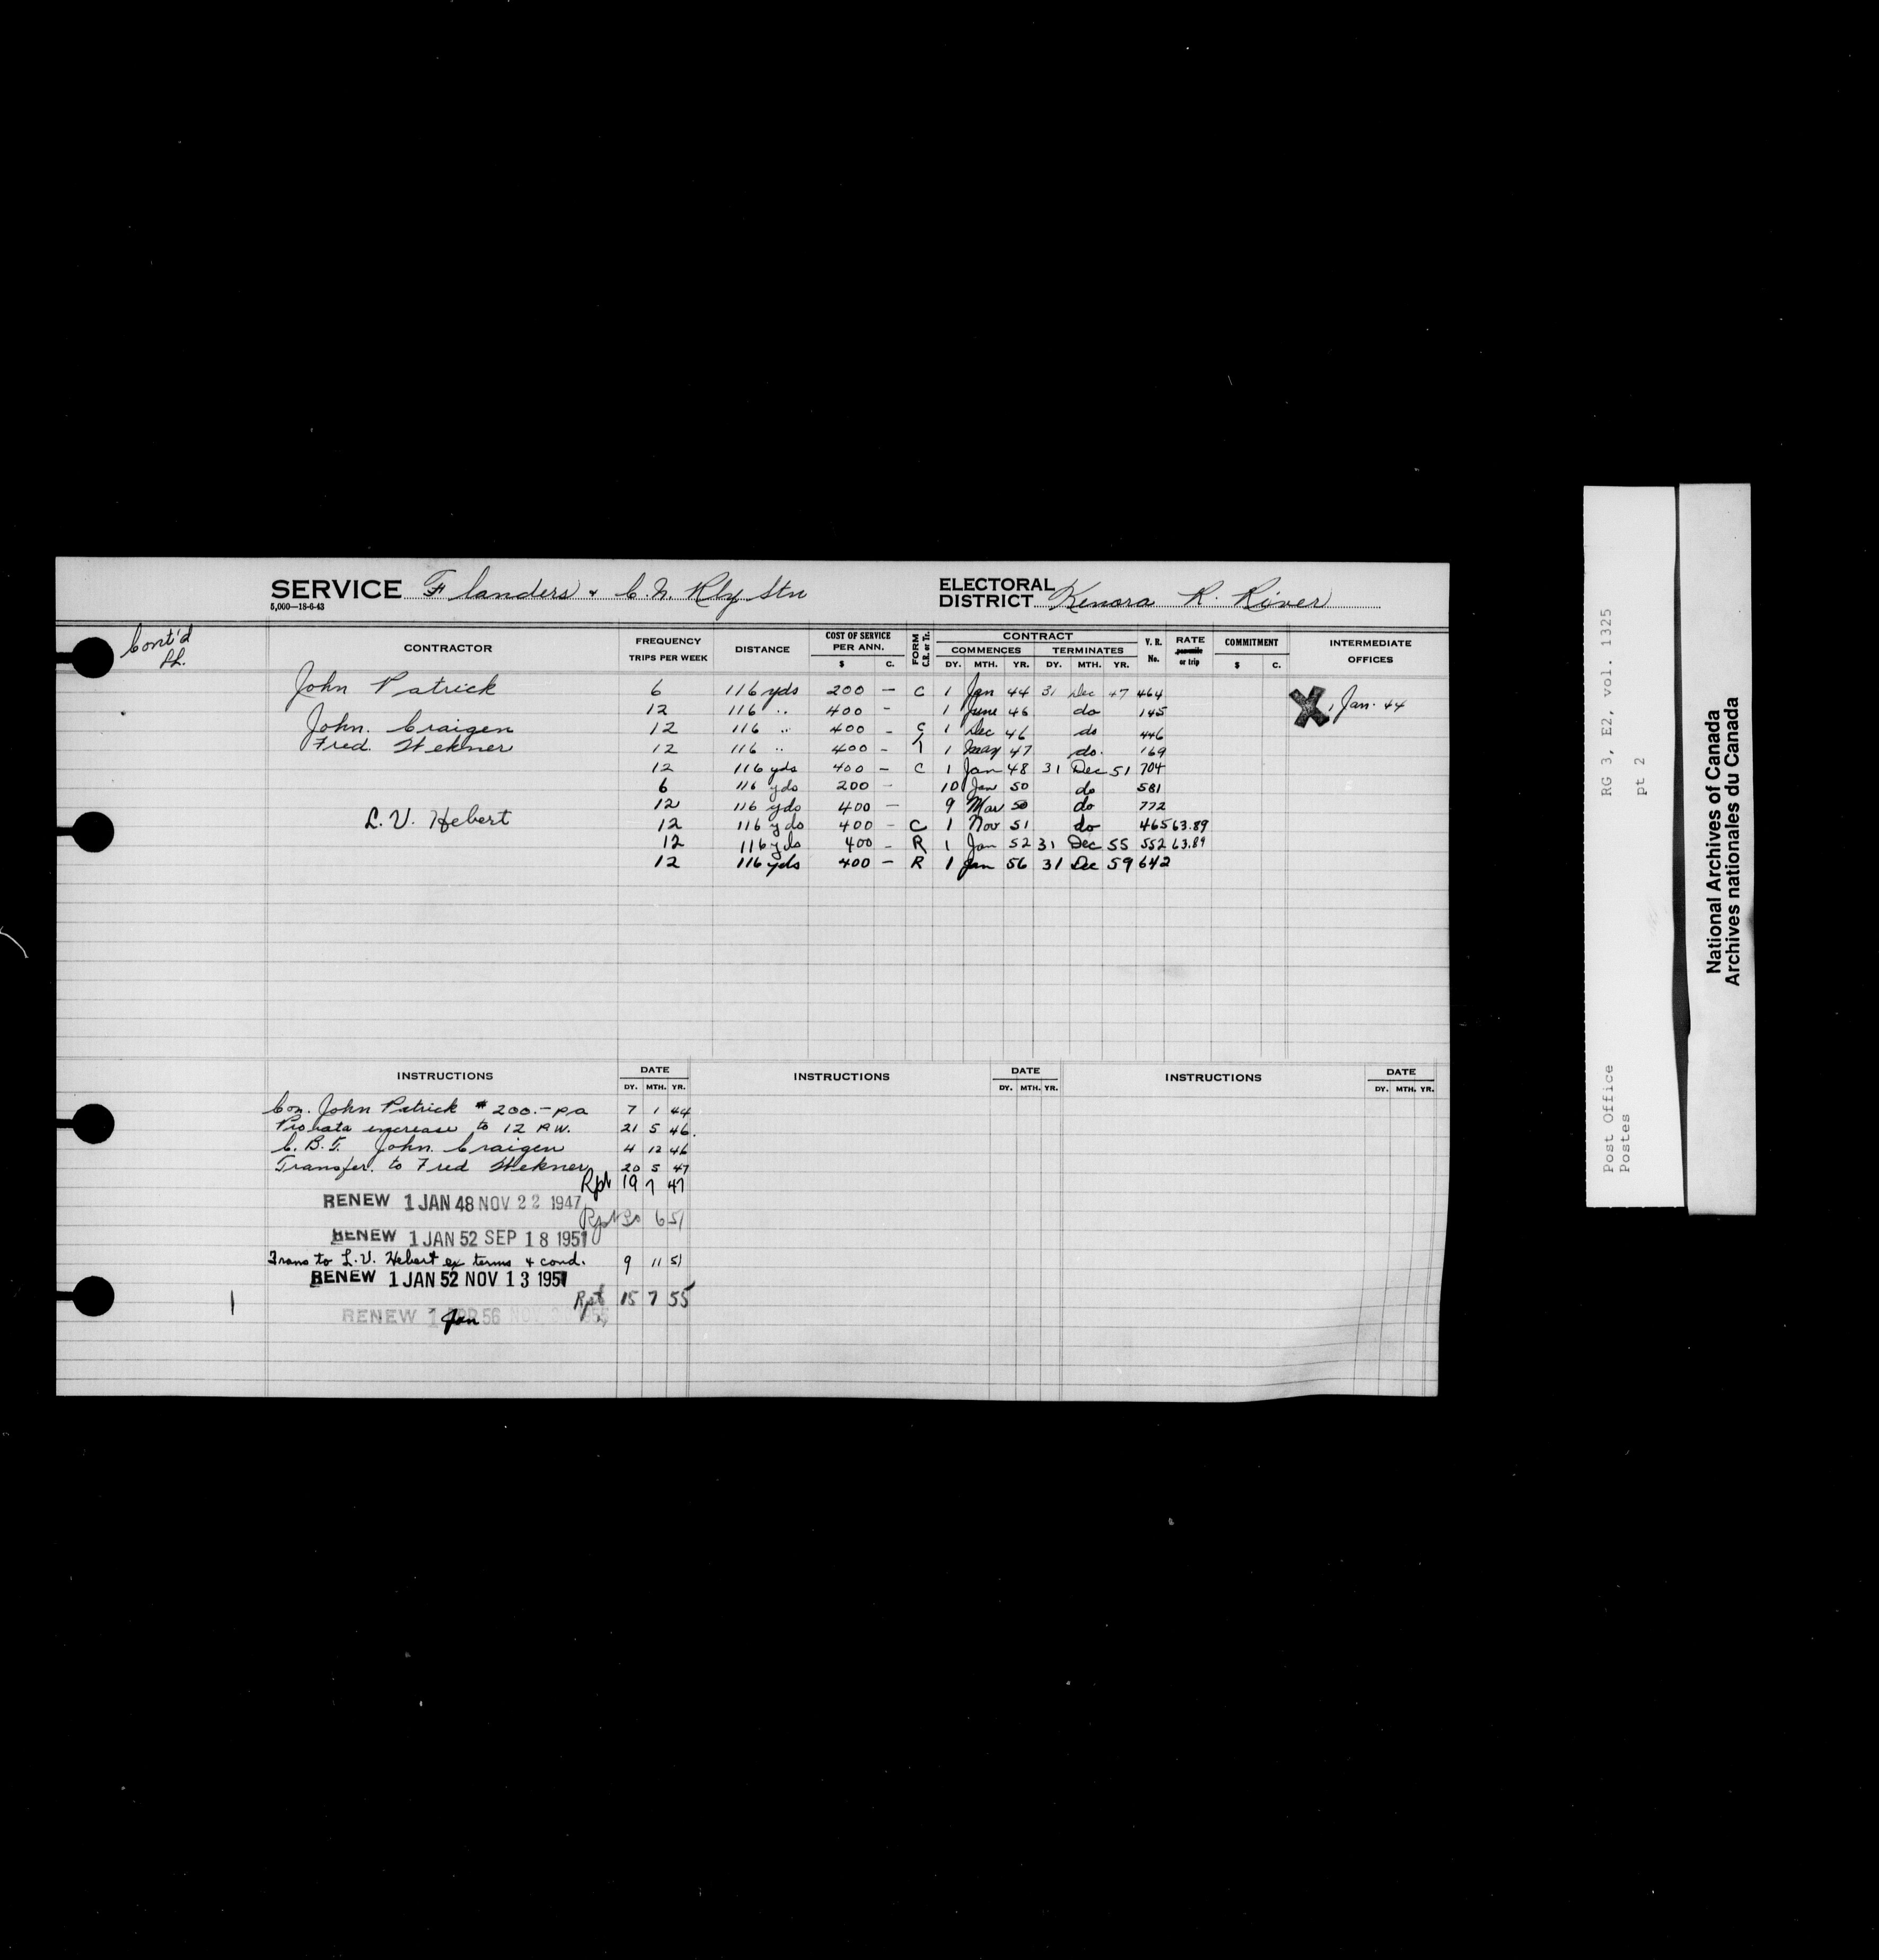 SERVICE Flanders & C.N. Rly Stn ELECTORAL DISTRICT Kenora R. River
5,000—18-6-43
Cont'd
CONTRACTOR FREQUENCY TRIPS PER WEEK DISTANCE COST OF SERVICE PER ANN. $ C. FORM C.R. or Tr. CONTRACT COMMENCES DY. MTH. YR. TERMINATES DY. MTH. YR. V. R. No. RATE per mile or trip COMMITMENT $ C. INTERMEDIATE OFFICES
John Patrick 6 116 yds 200 — C 1 Jan 44 31 Dec 47 464
12 116 " 400 - 1 June 46 do 145 X 1 Jan. 44
John. Craigen 12 116 " 400 - C 1 Dec 46 do 446
Fred. Wekner 12 116 " 400 - T 1 May 47 do. 169
12 116 yds 400 — C 1 Jan 48 31 Dec 51 704
6 116 yds 200 — 10 Jan 50 do 581
12 116 yds 400 — 9 Mar 50 do 772
L. V. Hebert 12 116 yds 400 - C 1 Nov 51 do 465 63.89
12 116 yds 400 - R 1 Jan 52 31 Dec 55 552 63.89
12 116 yds 400 — R 1 Jan 56 31 Dec 59 642
INSTRUCTIONS DATE DY. MTH. YR. INSTRUCTIONS DATE DY. MTH. YR. INSTRUCTIONS DATE DY. MTH. YR.
Con. John Patrick $200.- pa 7 1 44
Pro rata increase to 12 P.W. 21 5 46.
C. B. T. John. Craigen 4 12 46
Transfer. to Fred Wekner 20 5 47
Rpt 19 7 47
RENEW 1 JAN 48 NOV 22 1947
Rpt 20 6 51
RENEW 1 JAN 52 SEP 18 1951
Trans to L.V. Hebert ex terms & cond. 9 11 51
RENEW 1 JAN 52 NOV 13 1951
Rpt 15 7 55
RENEW 1 APR 56 NOV 1955
Jan
RG 3, E2, vol. 1325
pt 2
Post Office
Postes
National Archives of Canada
Archives nationales du Canada